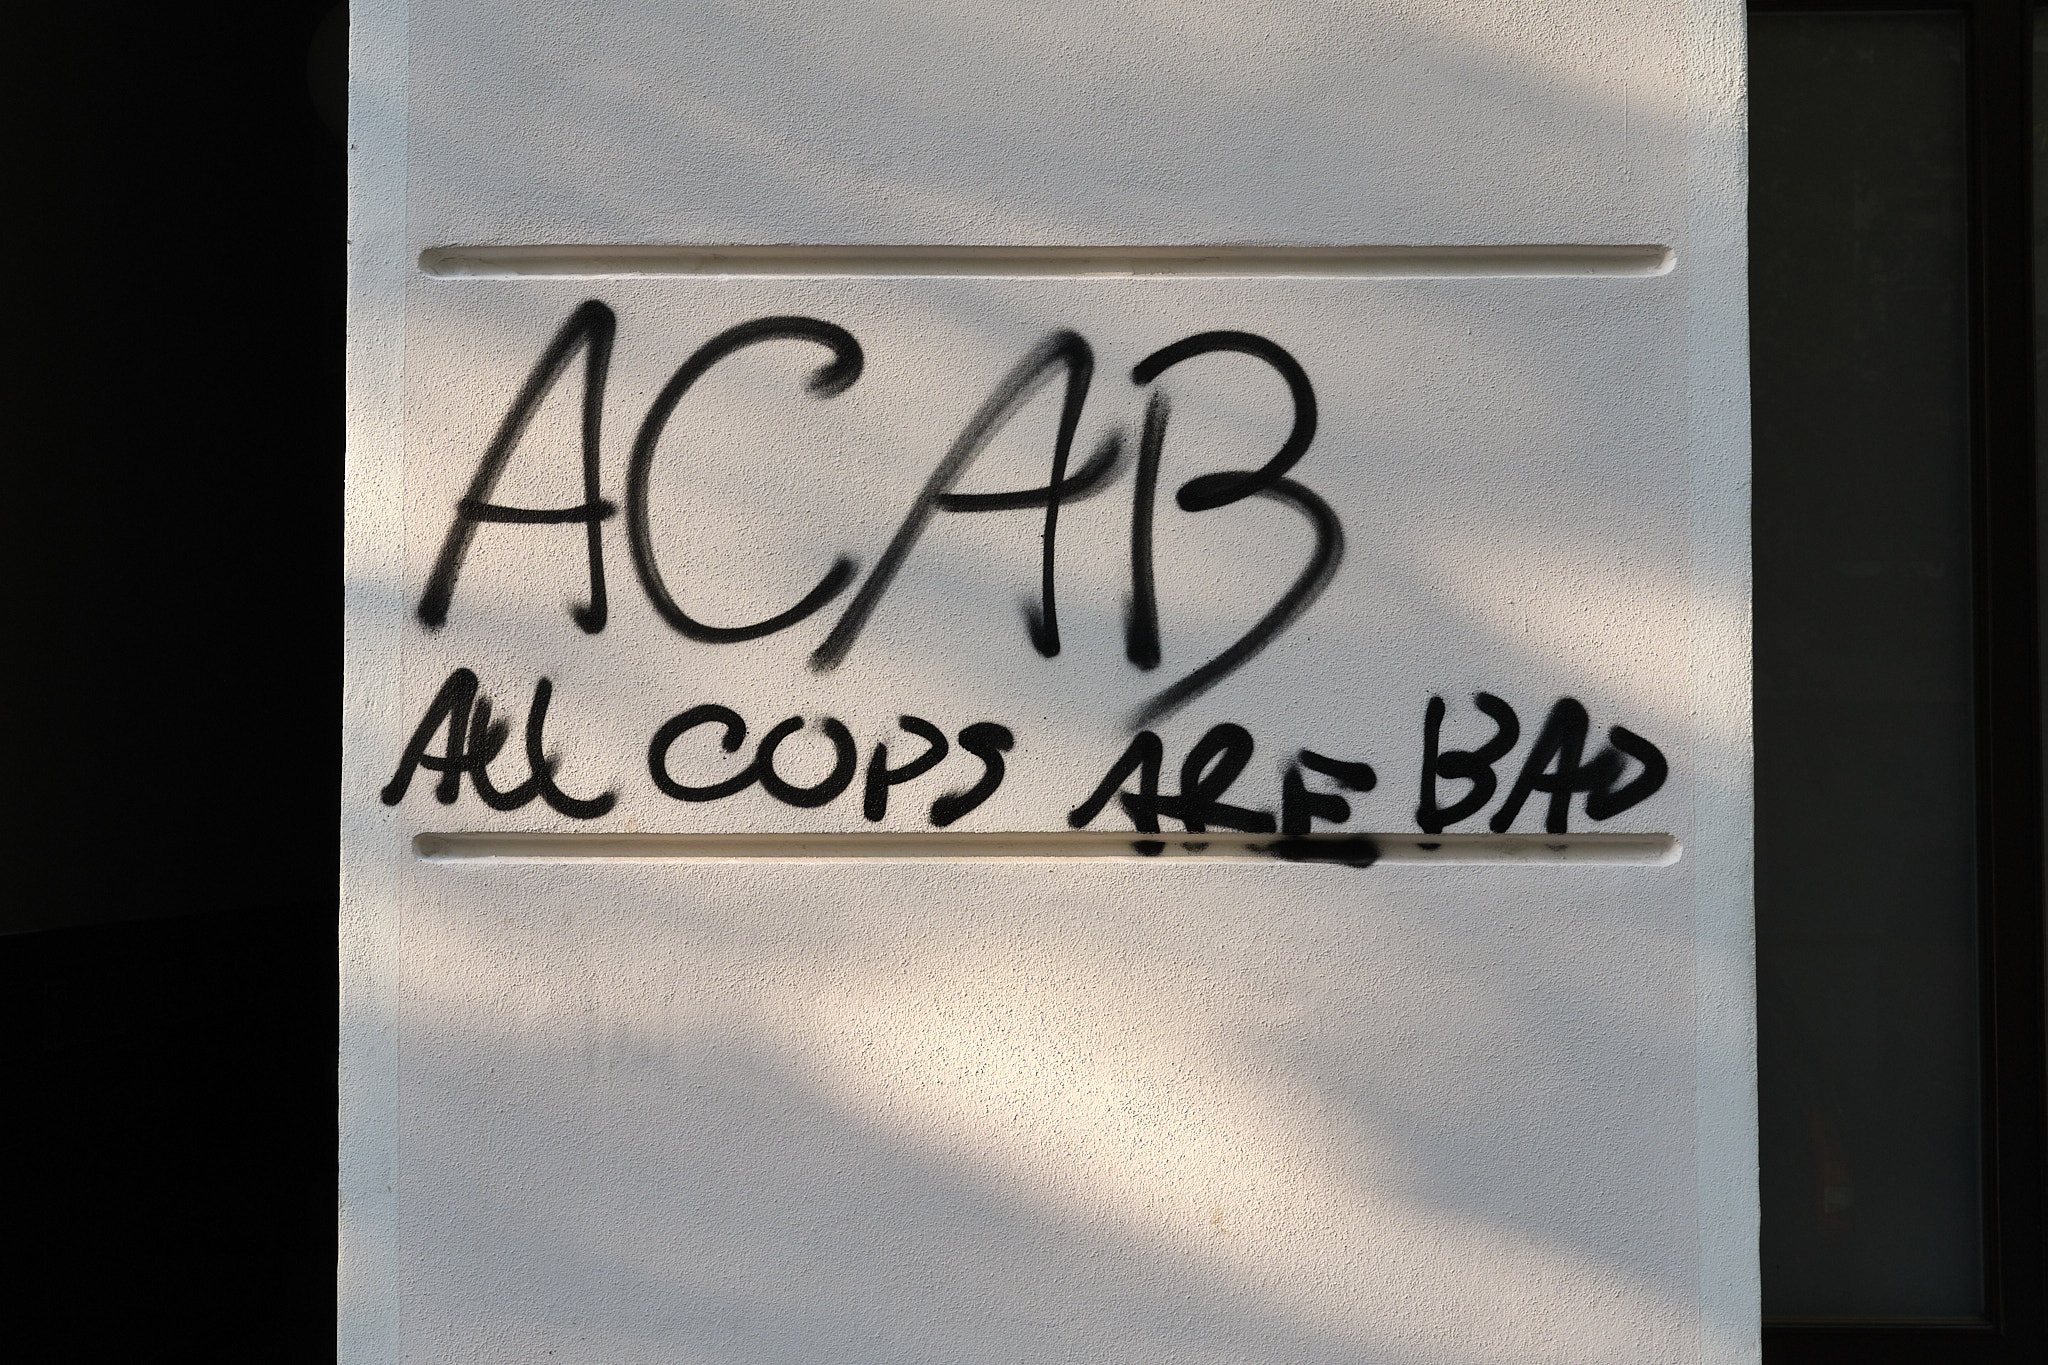 ACAB
All COPS ARE BAD